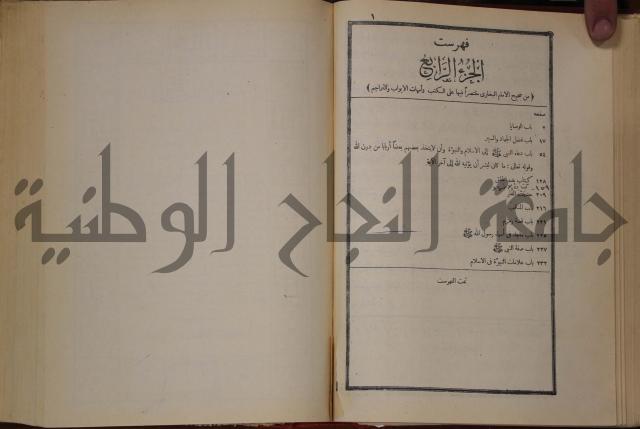 ١
فهرست
الجزء الرابع
(من صحيح الامام البخارى مقتصرا فيها على الكتب وأمهات الابواب والتراجم)
صحيفة
٢ باب الوصايا
١٧ باب فضل الجهاد والسير
٥٤ باب دعاء النبى ﷺ إلى الاسلام والنبوة وأن لا يتخذ بعضهم بعضا أربابا من دون الله
وقوله تعالى: ما كان لبشر أن يؤتيه الله إلى آخر الآية
١٢٨ كتاب بدء الخلق
١٥٩
٢٠٩ حديث الغار
٢١٦ باب المناقب
باب
٢٢٥ باب ما جاء فى أسماء رسول الله ﷺ
٢٢٧ باب صفة النبى ﷺ
٢٣٢ باب علامات النبوة فى الاسلام
تمت الفهرست
جامعة النجاح الوطنية